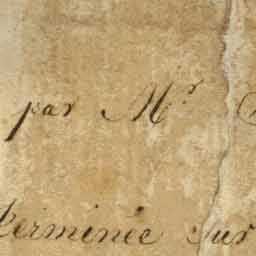 par Mr
terminée sur